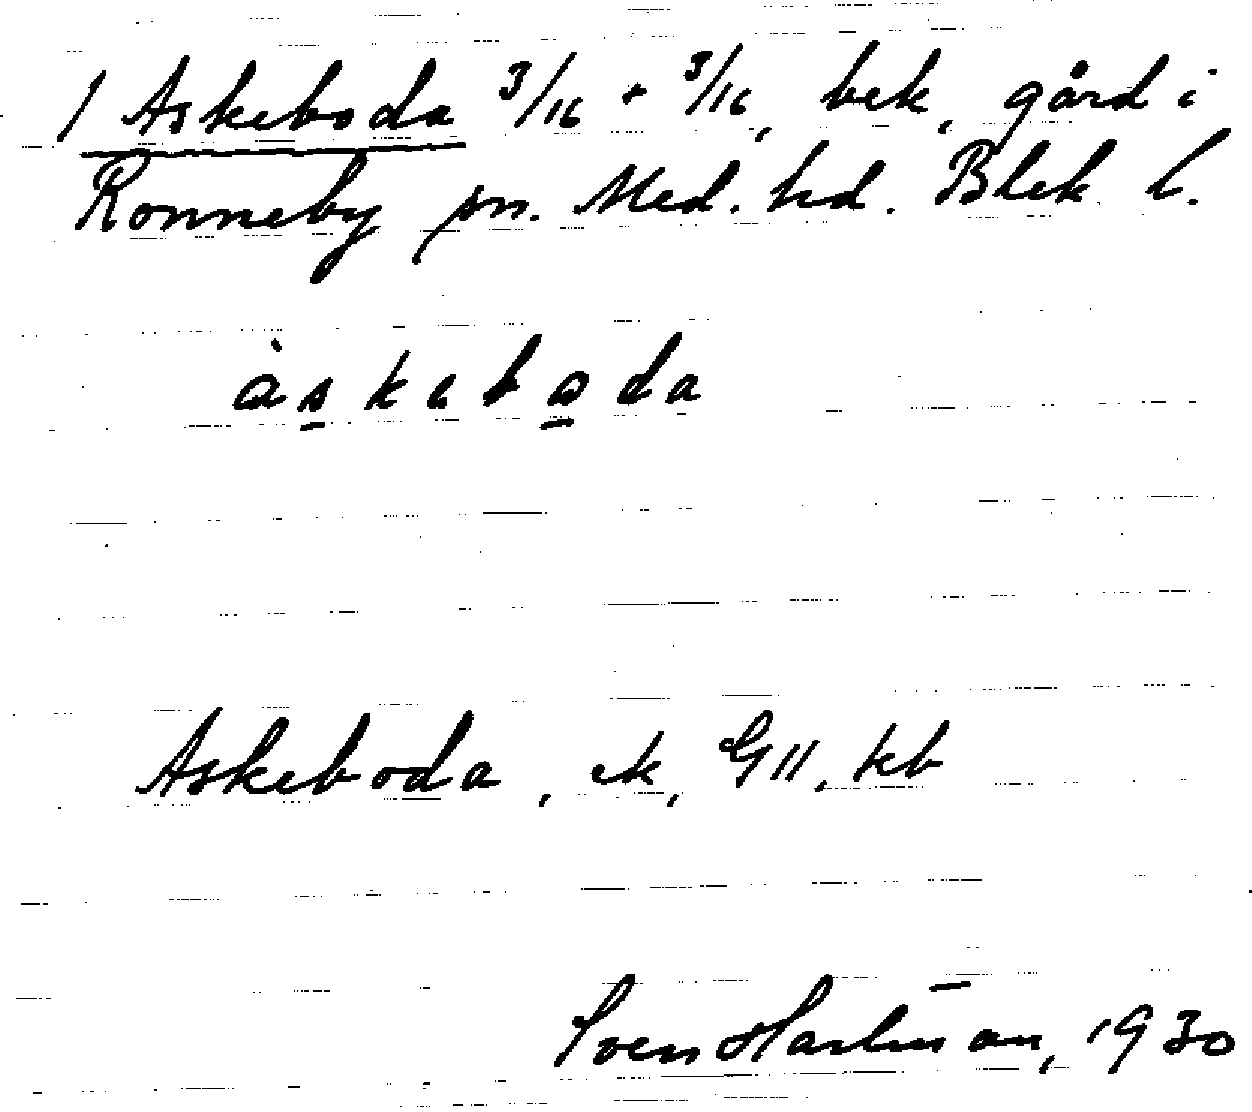 1 Askeboda 3/16 + 3/16, bek, gård i
Ronneby sn. Med. hd. Blek l.
àskeboda
Askeboda, ek, GII, kb
Sven Hartman, 1930